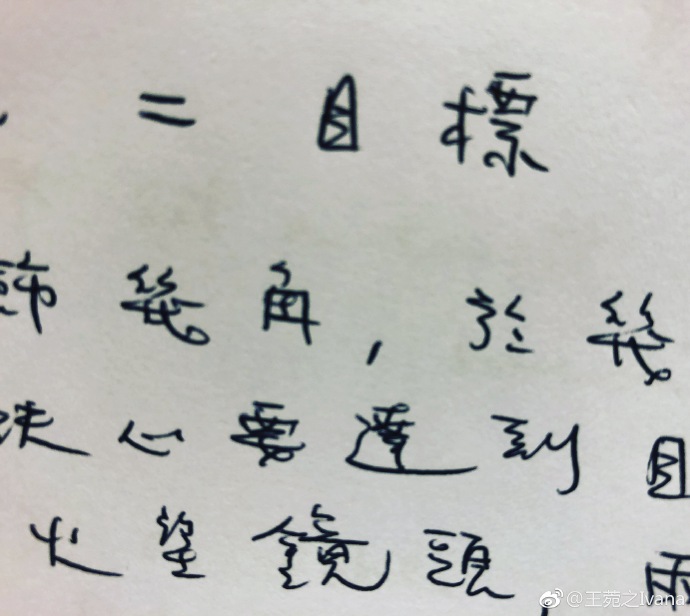 = 目標
飾幾角,於幾
決心要達到目
望鏡頭,
@王菀之Ivana